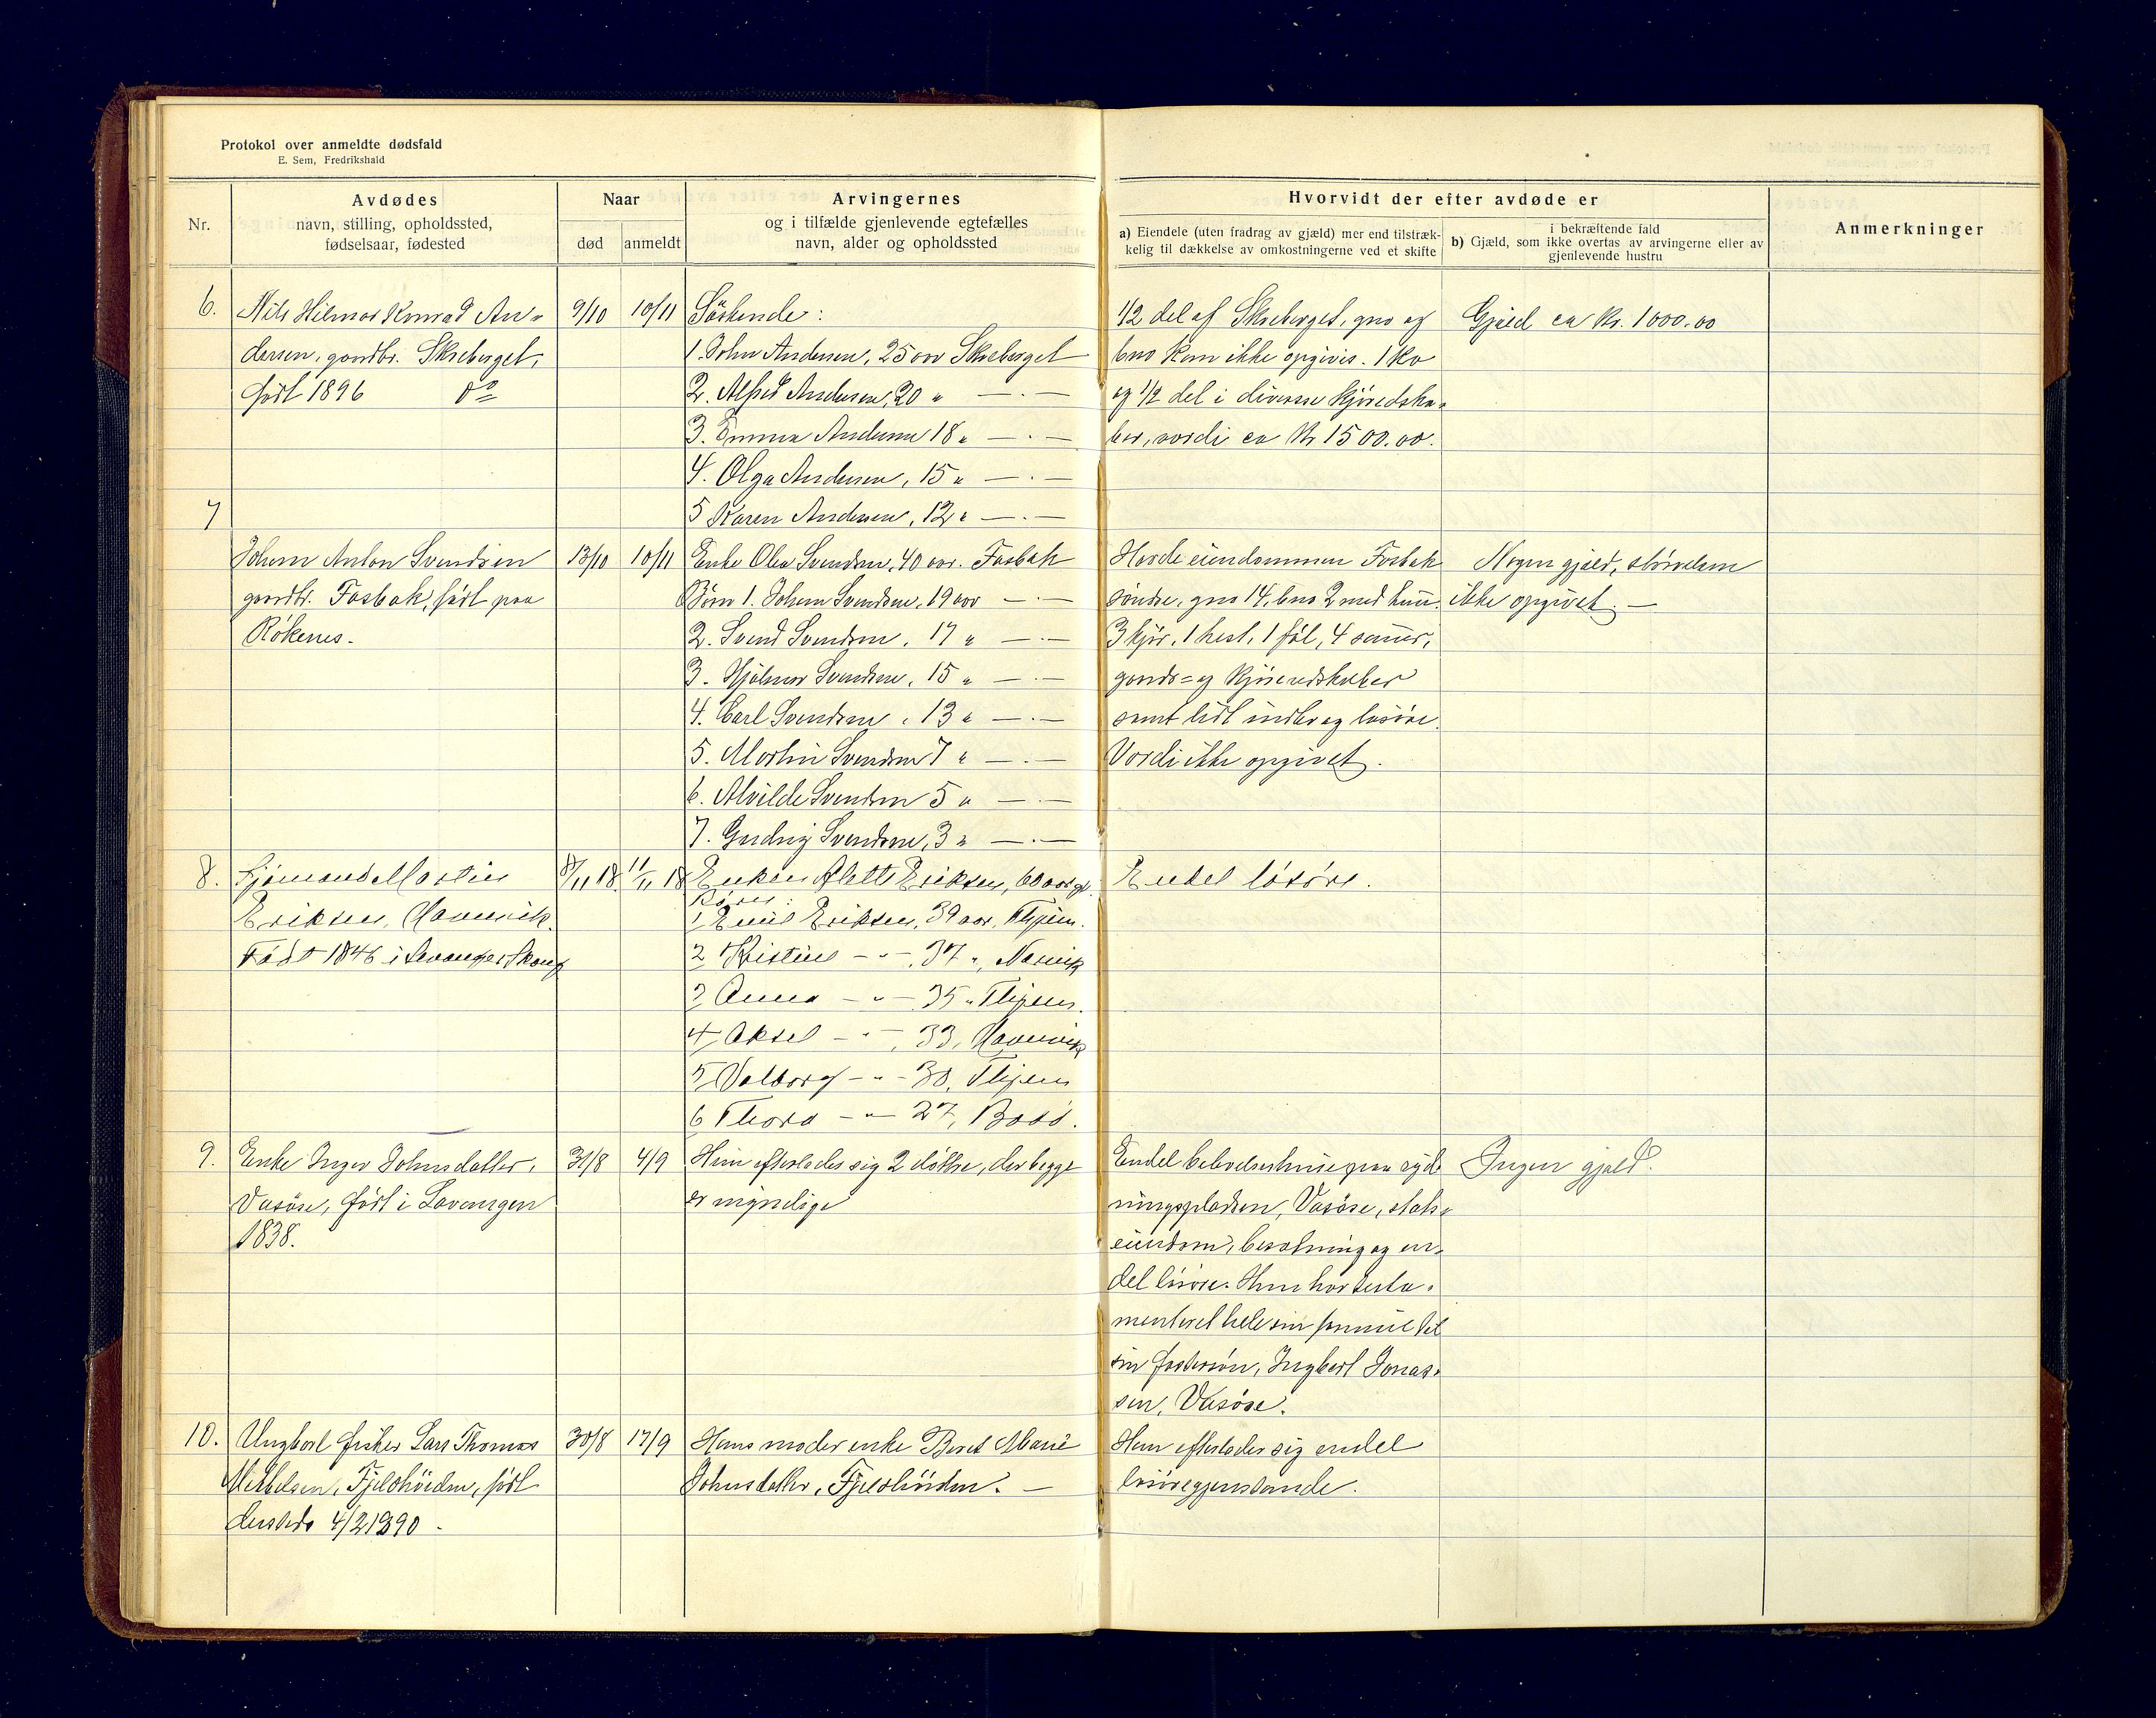 Protokol over anmeldte dødsfald
E. Sem, Fredrikshald
Nr.
Avdødes
navn, stilling, opholdssted,
fødselsaar, fødested
Naar
død
anmeldt
Arvingernes
og i tilfælde gjenlevende egtefælles
navn, alder og opholdssted
Hvorvidt der efter avdøde er
a) Eiendele (uten fradrag av gjæld) mer end tilstræk-
kelig til dækkelse av omkostningerne ved et skifte
i bekræftende fald
b) Gjæld, som ikke overtas av arvingerne eller av
gjenlevende hustru
Anmerkninger
6.
Nils Hilmar Konrad An-
dersen, gaardbr. Skreberget,
født 1896 do
9/10
10/11
Söskende:
1. John Andersen, 25 aar Skreberget
2. Alfred Andersen, 20 " — . —
3. Emma Andersen 18 " — . —
4. Olga Andersen, 15 " — . —
5 Karen Andersen, 12 " — . —
1/2 del af Skreberget, gno og
bno kan ikke opgives. 1 ko
og 1/2 del i diverse kjöredska-
ber, værdi ca Kr 1500.00.
Gjæld ca Kr. 1000.00
7
Johan Anton Svendsen
gaardbr. Fosbak, født paa
Rökenes.
13/10
10/11
Enke Olea Svendsen, 40 aar. Fosbak
Børn 1. Johan Svendsen, 19 aar — . —
2. Svend Svendsen, 17 " — . —
3. Hjalmar Svendsen, 15 " — . —
4. Carl Svendsen, 13 " — . —
5. Martin Svendsen 7 " — . —
6. Alvilde Svendsen 5 " — . —
7. Gudny Svendsen, 3 " — . —
Havde eiendommen Fosbak
söndre, gno 14, bno 2 med huse.
3 kjör, 1 hest, 1 föl, 4 sauer,
gaards= og kjöreredskaber
samt lidt indbo og lösöre.
Værdi ikke opgivet.
Nogen gjæld, störrelsen
ikke opgivet. —
8.
Sjömand Martin
Eriksen, Havnvik.
Født 1846 i Levanger Skong
8/11 18.
11/11 18
Enken Alette Eriksen, 60 aar gl.
Børn:
1 Emil Eriksen, 39 aar, Thjem.
2 Kristine - " - , 37 ", Narvik
3 Anna - " - 35 " Thjem.
4 Aksel - " - , 33, Havnvik
5 Valborg - " - 30, Thjem
6 Thora - " - 27, Bodö.
Endel lösöre.
9.
Enke Inger Johnsdatter,
Vasöse, født i Lavangen
1838.
31/8
4/9
Hun efterlader sig 2 døtre, der begge
er myndige
Endel beboelseshuse paa ryd-
ningspladsen, Vasöse, stats-
eiendom, besætning og en-
del lösöre. Hun har testa-
menteret hele sin formue til
sin fostersön, Ingbert Jonas-
sen, Vasöse.
Ingen gjæld.
10.
Ungkarl fisker Lars Thomas
Mikkelsen, Fjeldhöiden, født
dersteds 4/2 1890.
30/8
17/9
Hans moder enke Beret Marie
Johnsdatter, Fjeldhöiden. —
Han efterlader sig endel
lösöregjenstande.